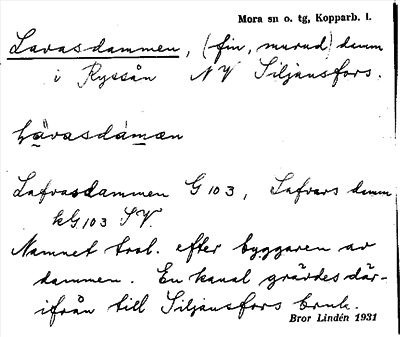 Mora sn o. tg, Kopparb. l.
Lavasdammen, (fin, murad) damm
i Ryssån NV Siljansfors.
lävasdámæn
Lafvasdammen G 103, Lafvars damm
kG 103 SV.
Namnet trol. efter byggaren av
dammen. En kanal grävdes där-
ifrån till Siljansfors bruk.
Bror Lindén 1931